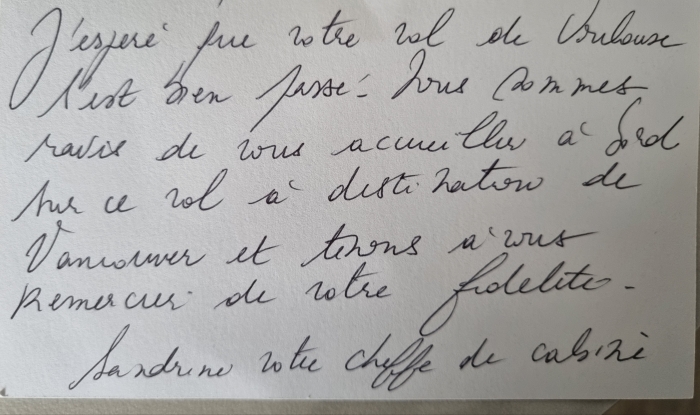 J'espère que votre vol de Toulouse
s'est bien passé. Nous sommes
ravis de vous accueillir à bord
sur ce vol à destination de
Vancouver et tenons à vous
Remercier de votre fidélité.
Sandrine votre cheffe de cabine